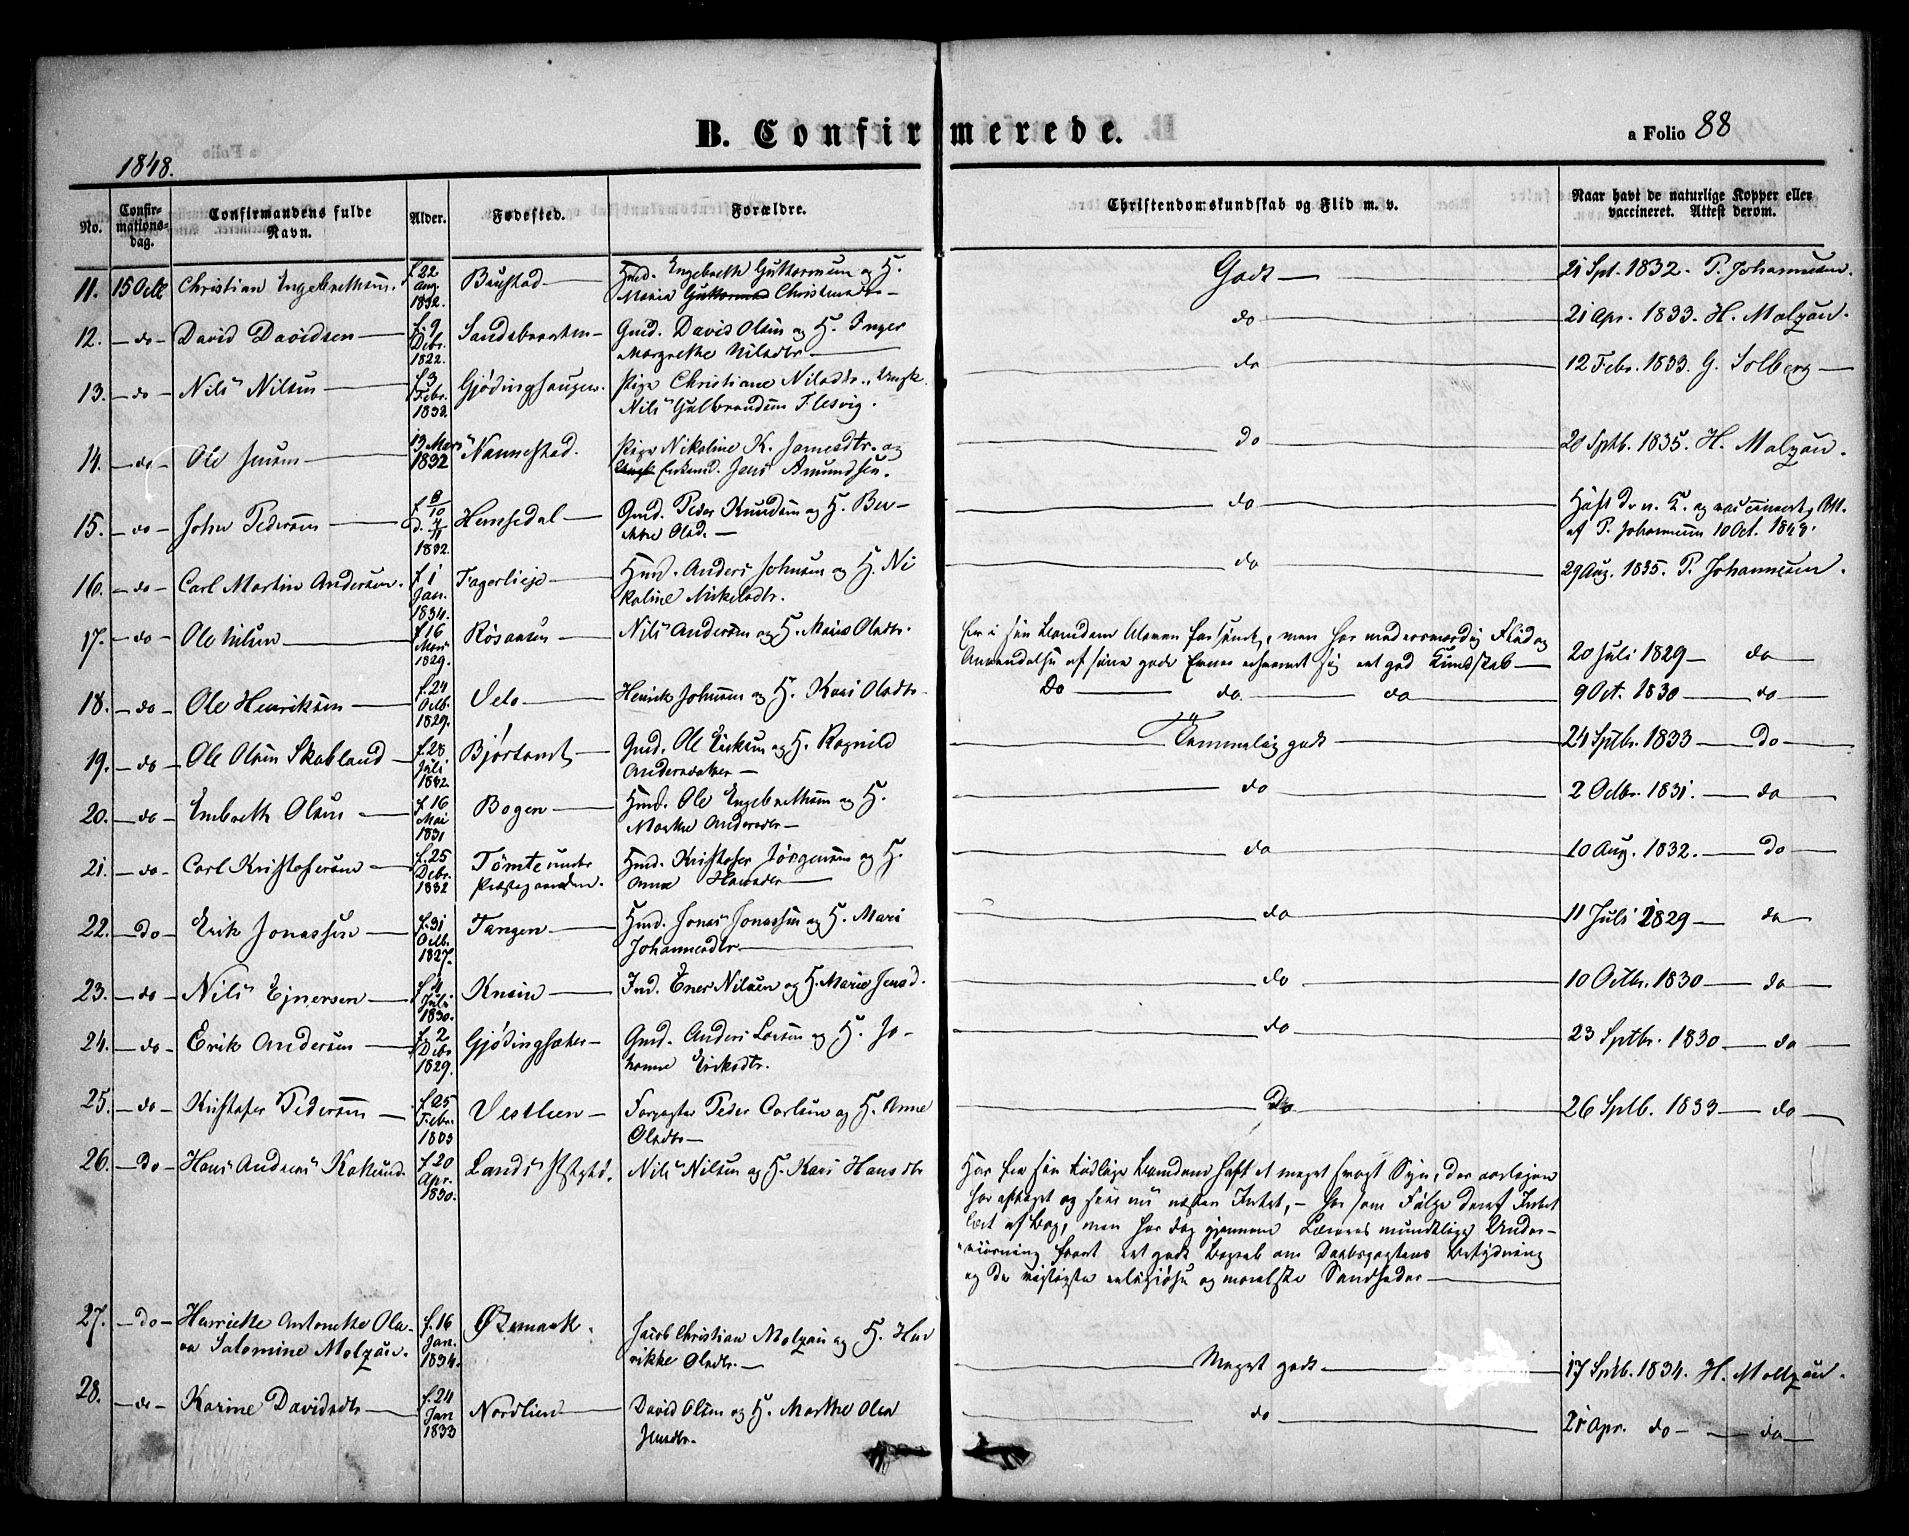 B. Confirmerede.
a Folio 88
1848.
No.
Confirmations-dag.
Confirmandens fulde Navn.
Alder.
Fødested.
Forældre.
Christendomskundskab og Flid m. v.
Naar havt de naturlige Kopper eller vaccineret. Attest derom.
11. 15 Octb Christian Engebrethsen. f. 22 Aug. 1832. Baustad Hmd. Engebreth Guttormsen og H. Maria Christensdr Godt 21 Spt. 1832. P. Johannesen.
12. do David Davidsen f. 9 Debr. 1822. Sandsbraaten Gmd. David Olsen og H. Inger Margrethe Nilsdtr do 21 Apr. 1833. H. Molzau.
13. do Nils Nilsen f. 3 Febr. 1832. Gjødinghaugen Pige Christiane Nilsdtr., Ungk. Nils Gulbrandsen Flesvig. do 12 Febr. 1833. G. Solberg
14. do Ole Jensen 13 Mars 1832 Nannestad. Pige Nikoline K. Jonsdtr. og Enkemd. Jens Amundsen. do 28 Sptb. 1835. H. Molzau.
15. do John Pedersen 1832. Hemsedal Gmd. Peder Knudsen og H. Olsd. do Haft d. n. K. og vaccineret, Att. af P. Johannesen 10 Oct. 1848.
16. do Carl Martin Andersen. f. 1 Jan. 1834. Fagerlieje Hmd. Anders Johnsen og H. Nikoline Mikelsdtr. do 29 Aug. 1835. P. Johannesen.
17. do Ole Nilsen f. 16 1829. Røsaasen Nils Andersen og H. Mari Olsdtr. Er i sin Barndom bleven forsømt, men har ved Flid og Anvendelse af sine gode Evner erhvervet sig et god Kundskab 20 Juli 1829 do
18. do Ole Henriksen f. 24 Octb. 1829. Velo Henrik Johnsen og H. Kari Olsdtr Do do do 9 Oct. 1830 do
19. do Ole Olsen Skabland f. 28 Juli 1832. Bjørtomt Gmd. Ole Eriksen og H. Ragnild Andersdatter Temmelig godt 24 Sptbr. 1833 Do
20. do Embreth Olsen f. 16 Mai 1831 Bogen Hmd. Ole Engebrethsen og H. Marthe Andersdtr do 2 Octbr. 1831. do
21. do Carl Kristofersen f. 25 Debr. 1832 Tømte under Præstegaarden. Hmd. Kristofer Jørgensen og H. Anne Hansdtr do 10 Aug. 1832. Do
22. Do Erik Jonassen f. 31 Octb. 1827. Tangen Hmd. Jonas Jonassen og H. Mari Johannesdtr do 11 Juli 1829 do
23. do Nils Ejnersen f. 4 Juli 1830. Knein Ind. Ener Nilsen og H. Marie Jensd. do 10 Octbr. 1830 do
24. do Erik Andersen f. 2 Debr 1829. Gjødingsæter Gmd. Anders Larsen og H. Johanne Eriksdtr. do 23 Sptbr. 1830 do
25. do Kristofer Pedersen f. 25 Febr. 1833 Vestlien Forpagter Peder Carlsen og H. Anne Olsdtr Do 26 Sptb. 1833 do
26. Do Hans Andreas f. 20 Apr. 1830. Lands Pstgjd. Nils Nilsen og H. Kari Hansdtr Har fra sin tidlige Barndom haft et meget svagt Syn, der
har aftaget og seer nu næsten Intet, har som Følge deraf Intet
lært af Bog, men har dog gjennem Lærerens mundtlige Under-
viisning faaet et godt Begreb om Daabspagtens Betydning
og de vigtigste religiøse og moralske Sandheder
27. Do Henriette Antonette Olava Salomine Molzau. f. 16 Jan. 1834. Østmark. Jacob Christian Molzau og H. Henrikke Olsdtr. Meget godt 17 Sptb. 1834. H. Moltzau.
28. do Karine Davidsdtr f. 24 Jan 1833 Nordlien David Olsen og H. Marthe Olea Jensdtr. do 21 Apr. do do